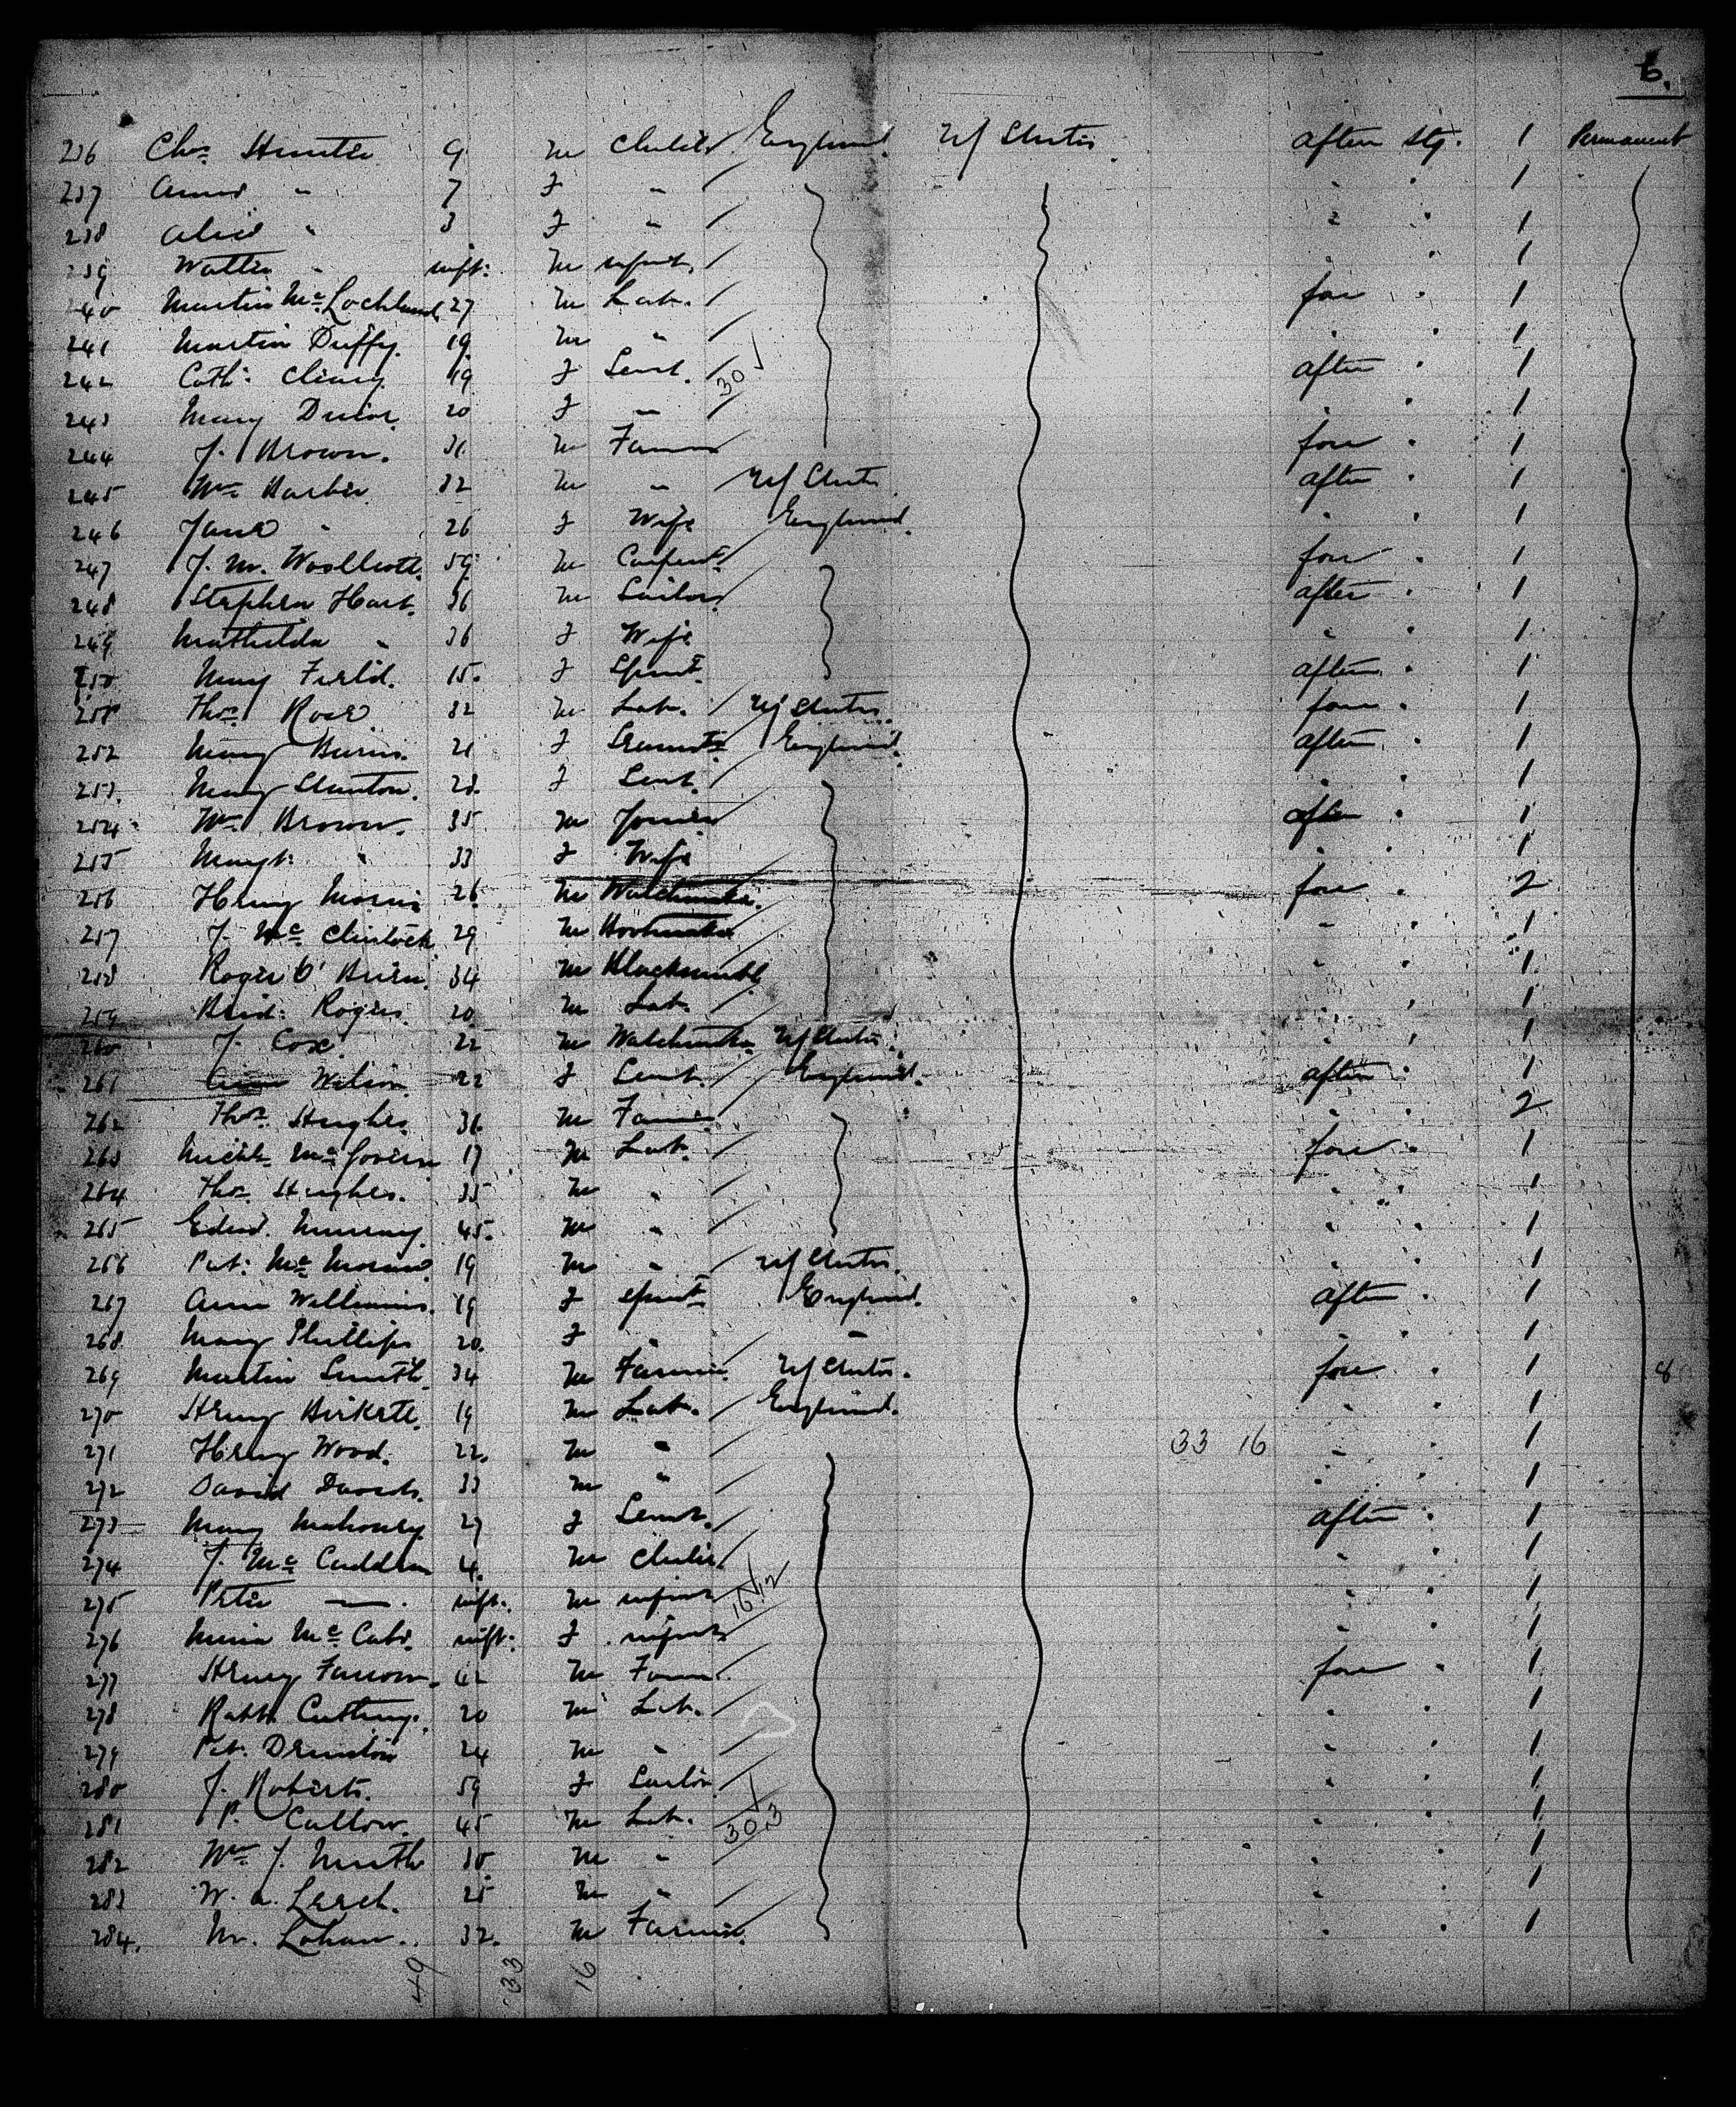 6.
236 Chas Hunter 9 M Child England U/States after Stg. 1 Permanent
237 Annie " 7 F " " " 1
238 Alice " 3 F " " " 1
239 Walter " inft. M infant " " 1
240 Martin Mc Lochland 27 M Lab. fore " 1
241 Martin Duffy. 19 M " " " 1
242 Cath: Cleary 19 F Servt. 30 after " 1
243 Mary 20 F " " " 1
244 J. Brown. 31 M Farmer fore " 1
245 Wm Barber 32 M " U/States after " 1
246 Jane " 26 F Wife England. " " 1
247 J. M. 59 M Carpentr fore " 1
248 Stephen Hart. 36 M Sailor after " 1
249 Mathilda " 36 F Wife " " 1
250 Mary Field. 15. F Spinst. after " 1
251 Thos Rose 32 M Lab. U/States. fore " 1
252 Mary Burns. 21 F Servant England. after " 1
253. Mary Stanton. 28. F Servt. " " 1
254 Wm Brown. 35 M Joiner after " 1
255 Margt. " 33 F Wife " " 1
256 Henry Morris 26 M Watchmaker. fore " 2
257 J. Mc Clintock 29 M Bootmaker " " 1
258 Roger O'Brien. 34 M Blacksmith " " 1
259 Rogers. 20 M Lab. " " 1
260 J. Cox. 22 M Watchmaker U/States. " " 1
261 Anne Wilson 22 F Servt. England. after " 1
262 Thos Hughes. 31. M Farmer " " 2
263 Michl. McGovern 17 M Lab. fore " 1
264 Thos. Hughes. 35 M " " " 1
265 Edwd. Murray. 45. M " " " 1
266 Pat: 19 M " U/States. " " 1
267 Ann Williams. 19 F Spinst England. after " 1
268 Mary Phillips 20. F " " " " 1
269 Martin Smith. 34 M Farmer U/States. fore " 1 8
270 Henry Birkett. 19 M Lab. England. " " 1
271 Henry Wood. 22. M " 33 16 " " 1
272 David Davids. 33 M " " " 1
273 Mary Mahoney. 27 F Servt. after " 1
274 J. Mc Cadden 4. M Child " " 1
275 Peter —. inft. M infant 16 12 " " 1
276 Mc Cabe. inft. F infant " " 1
277 Henry Farrow. 42 M Farmer fore " 1
278 Robt. Cutting. 20 M Lab. " " 1
279 Pat. 24 M " " " 1
280 J. Roberts. 59 F " " 1
281 P. Callow. 45 M Lab. 30 3 " " 1
282 Wm J. 30 M " " " 1
283 W. A. Leech. 25 M " " " 1
284. M. Lohan. 32. M Farmer. " " 1
49 33 16